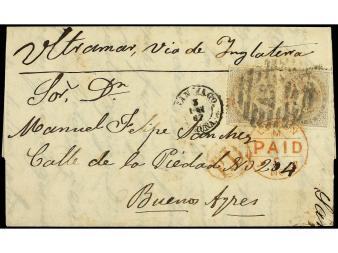 Ultramar, via de Inglaterra
Sor. Dn
Manuel Felipe Sanchez
Calle de la Piedad No 204
Buenos Ayres
PAID